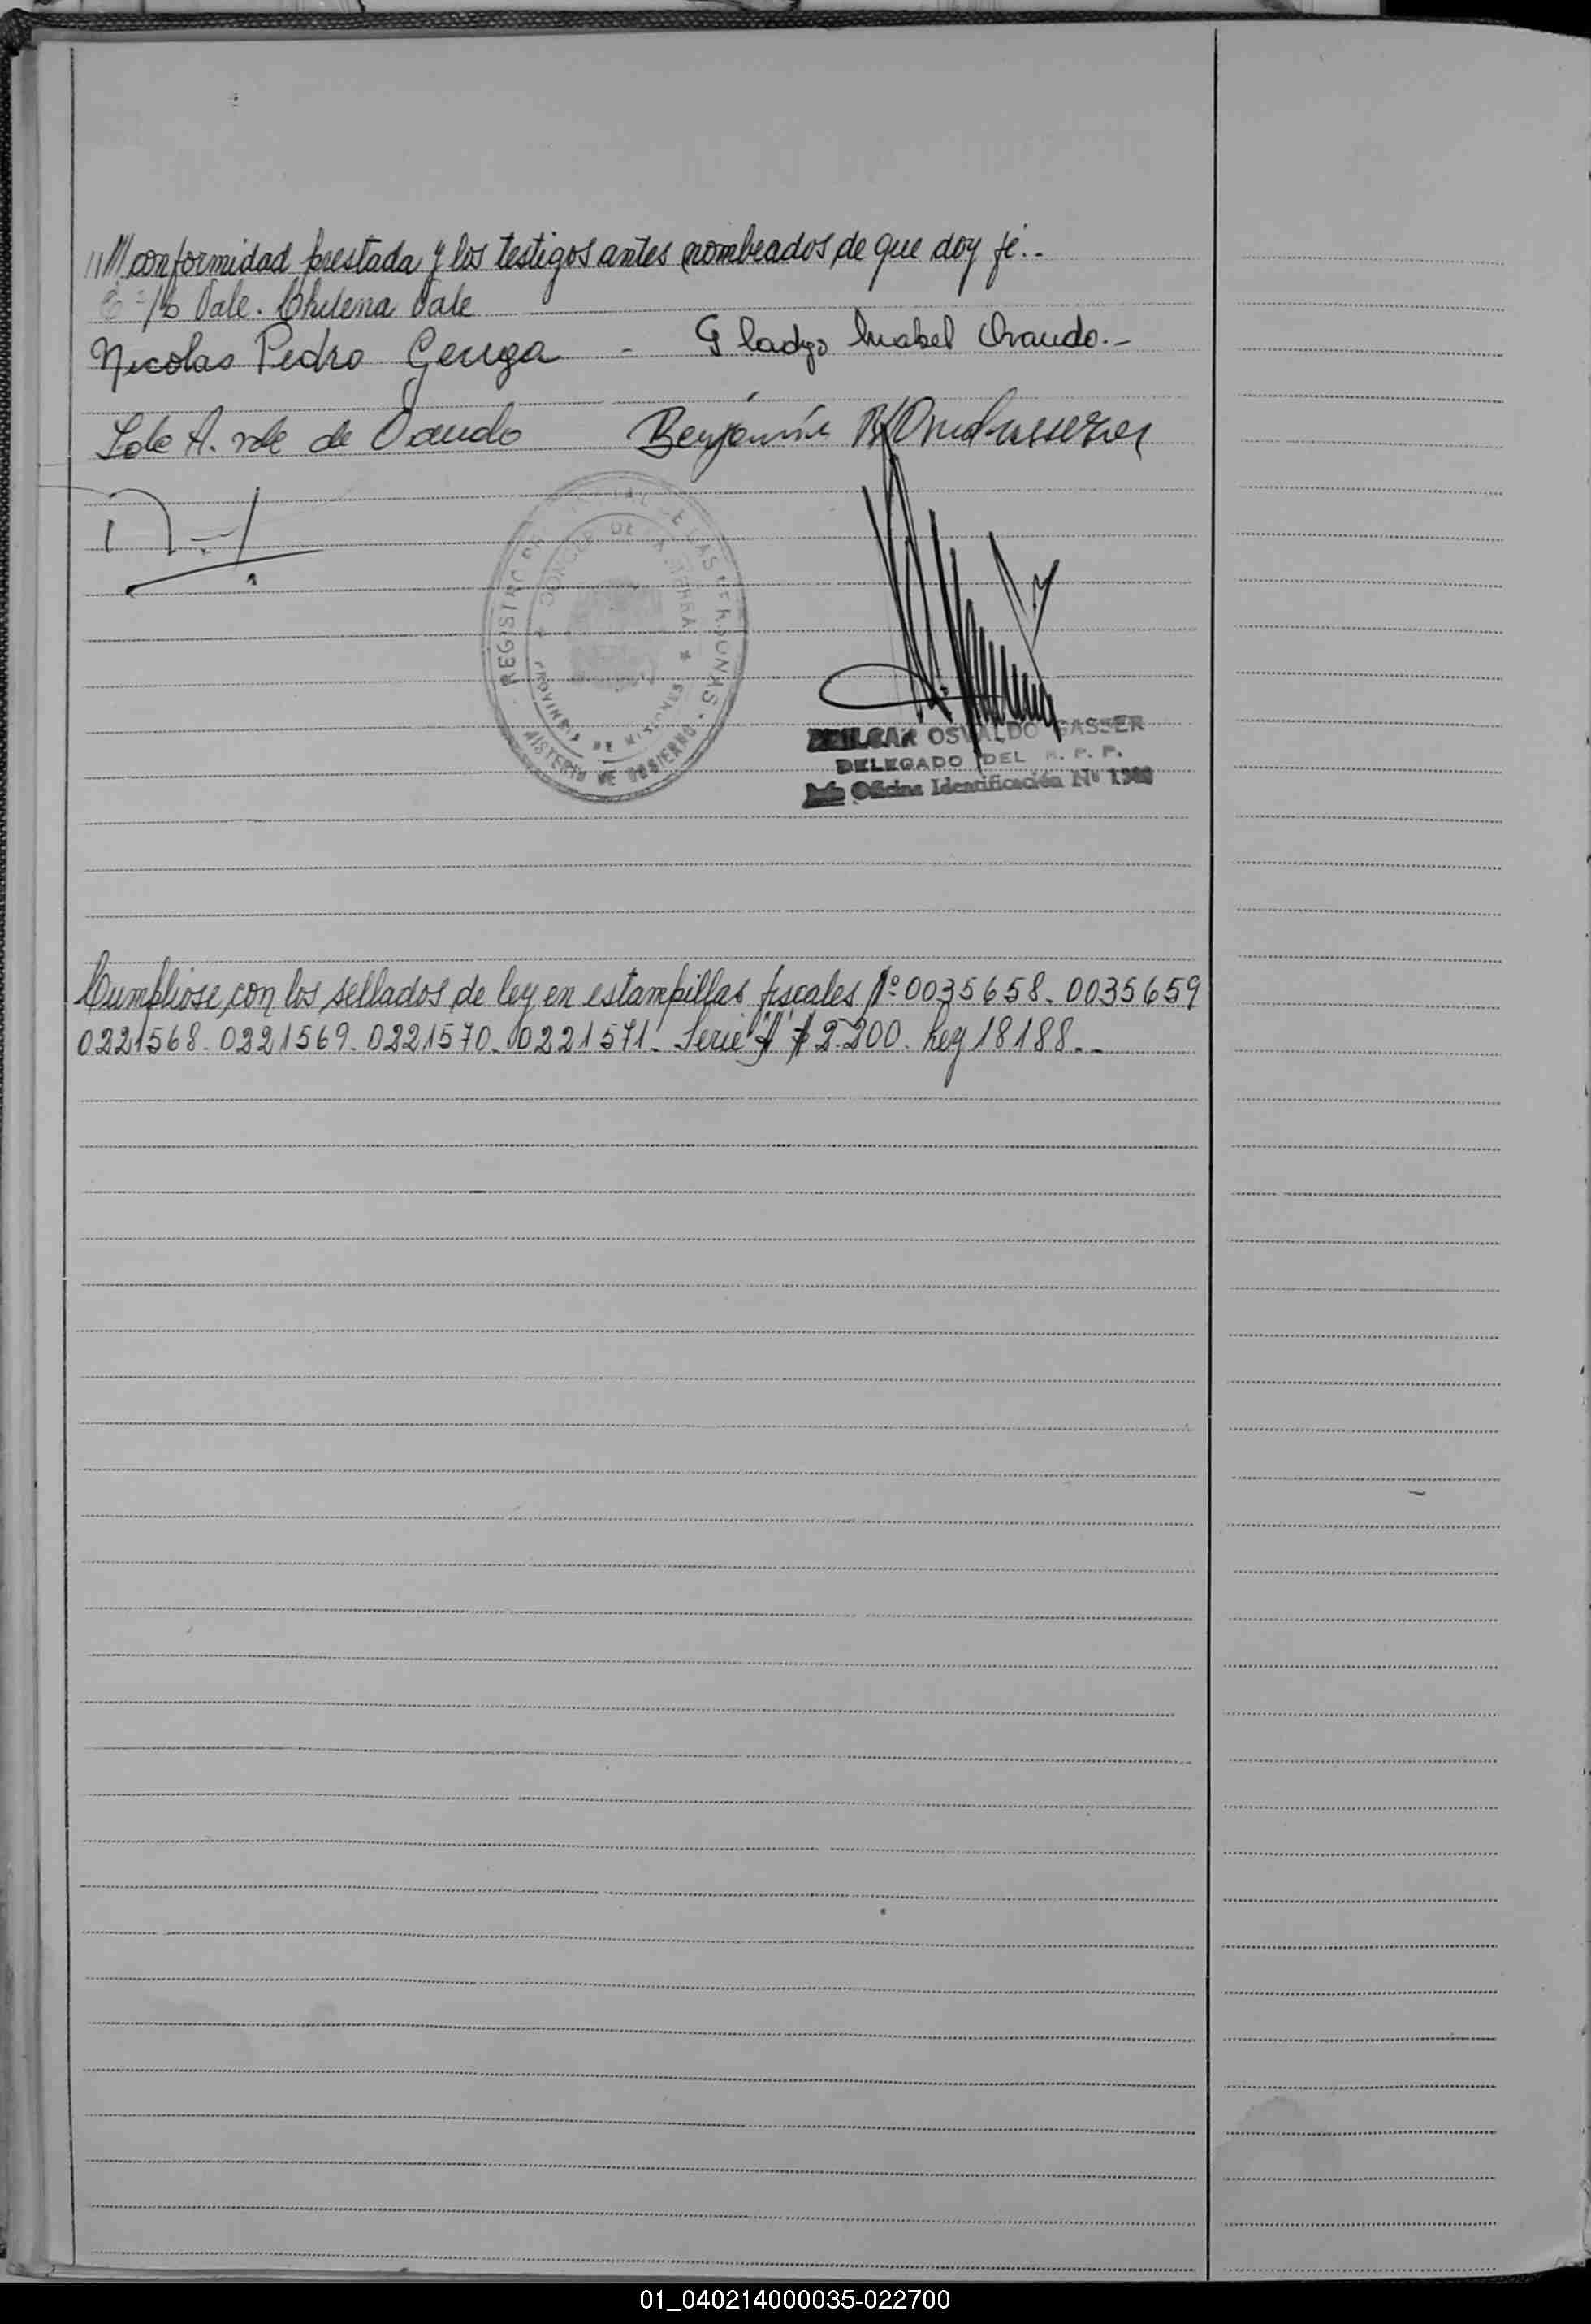 //// conformidad prestada y los testigos antes nombrados de que doy fé.-
Vale. Chilena Vale
Nicolas Pedro Genga - Gladys Mabel
de Benjamin
REGISTRO DE LAS PERSONAS
PROVINCIA DE MISIONES
MISTERIO DE GOBIERNO
OSVALDO GASSER
DELEGADO DEL R. P. P.
Oficina Identificación Nº
Cumpliose con los sellados de ley en estampillas fiscales Nº 0035658. 0035659
0221568. 0221569. 0221570. 0221571. Serie "A" $ 2.200. Ley 18188.-
01_040214000035-022700